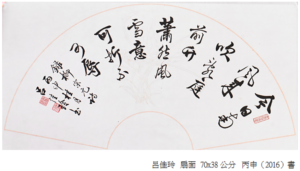 今日南
風來
吹亂庭
前竹
蕭然風
雪意
可折不
可辱
呂佳玲 扇面 70x38公分 丙申（2016）書